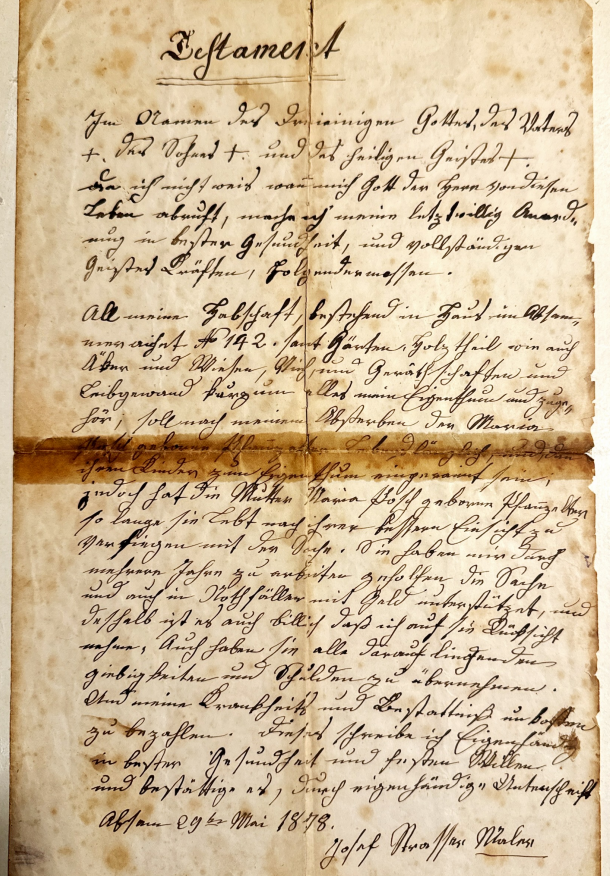 Testament
Im Namen des Dreieinigen Gottes, des Vaters
+. des Sohnes +. und des heiligen Geistes +.
Da ich nicht weis wan mich Gott der Herr von diesen
Leben abruft, mache ich meine letztwillig Anord-
nung in bester Gesundheit, und vollständigen
Geistes Kräften, folgendermassen.
All meine Habschaft, bestehend in Haus im Absam-
No 142. samt Gärten, Holztheil wie auch
Äker und Wiesen, Vieh und Geräthschaften und
Leibgewand kurzum alles mein Eigenthum und zuge-
hör, soll nach meinem Absterben der Maria
Post geborne und dan
ihren Kinder zum Eigenthum eingeraimt sein,
jedoch hat die Mutter Maria Post geborne
so lange sie lebt nach ihrer bessern Einsicht zu
verfiegen mit der Sache. Sie haben mir durch
mehrere Jahre zu arbeiten geholfen die Sache
und auch in Nothfällen mit Geld unterstützet, und
deshalb ist es auch billich daß ich auf sie Rücksicht
nehme, Auch haben sie alle darauf liegenden
giebigkeiten und Schulden zu übernehmen.
Und meine Krankheits und Bestattniß unkosten
zu bezahlen. Dieses schreibe ich Eigenhändig
in bester Gesundheit und festen Willen.
und bestättige es, durch eigenhändige Unterschrift
Absam 29ten Mai 1878.
Josef Strasser Maler